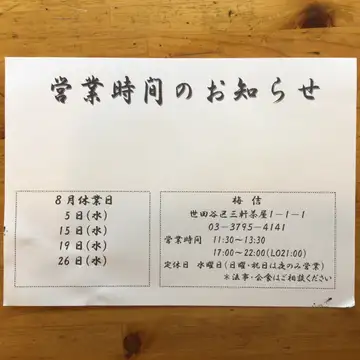 営業時間のお知らせ
8月休業日
5日(水)
15日(水)
19日(水)
26日(水)
梅信
世田谷区三軒茶屋1-1-1
03-3795-4141
営業時間 11:30~13:30
17:00~22:00(LO21:00)
定休日 水曜日(日曜・祝日は夜のみ営業)
*法事・会食はご相談ください